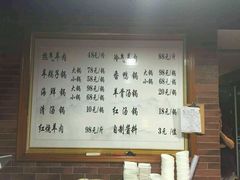 热气羊肉 48元/斤
羊蝎子锅 大锅 78元/锅
小锅 58元/锅
海鲜锅 大锅 98元/锅
小锅 68元/锅
清汤锅 10元/锅
红烧羊肉 98元/斤
冷气羊肉 38元/斤
香鸭锅 大锅 98元/锅
小锅 68元/锅
羊骨汤锅 20元/锅
红汤锅 18元/锅
自制酱料 3元/位